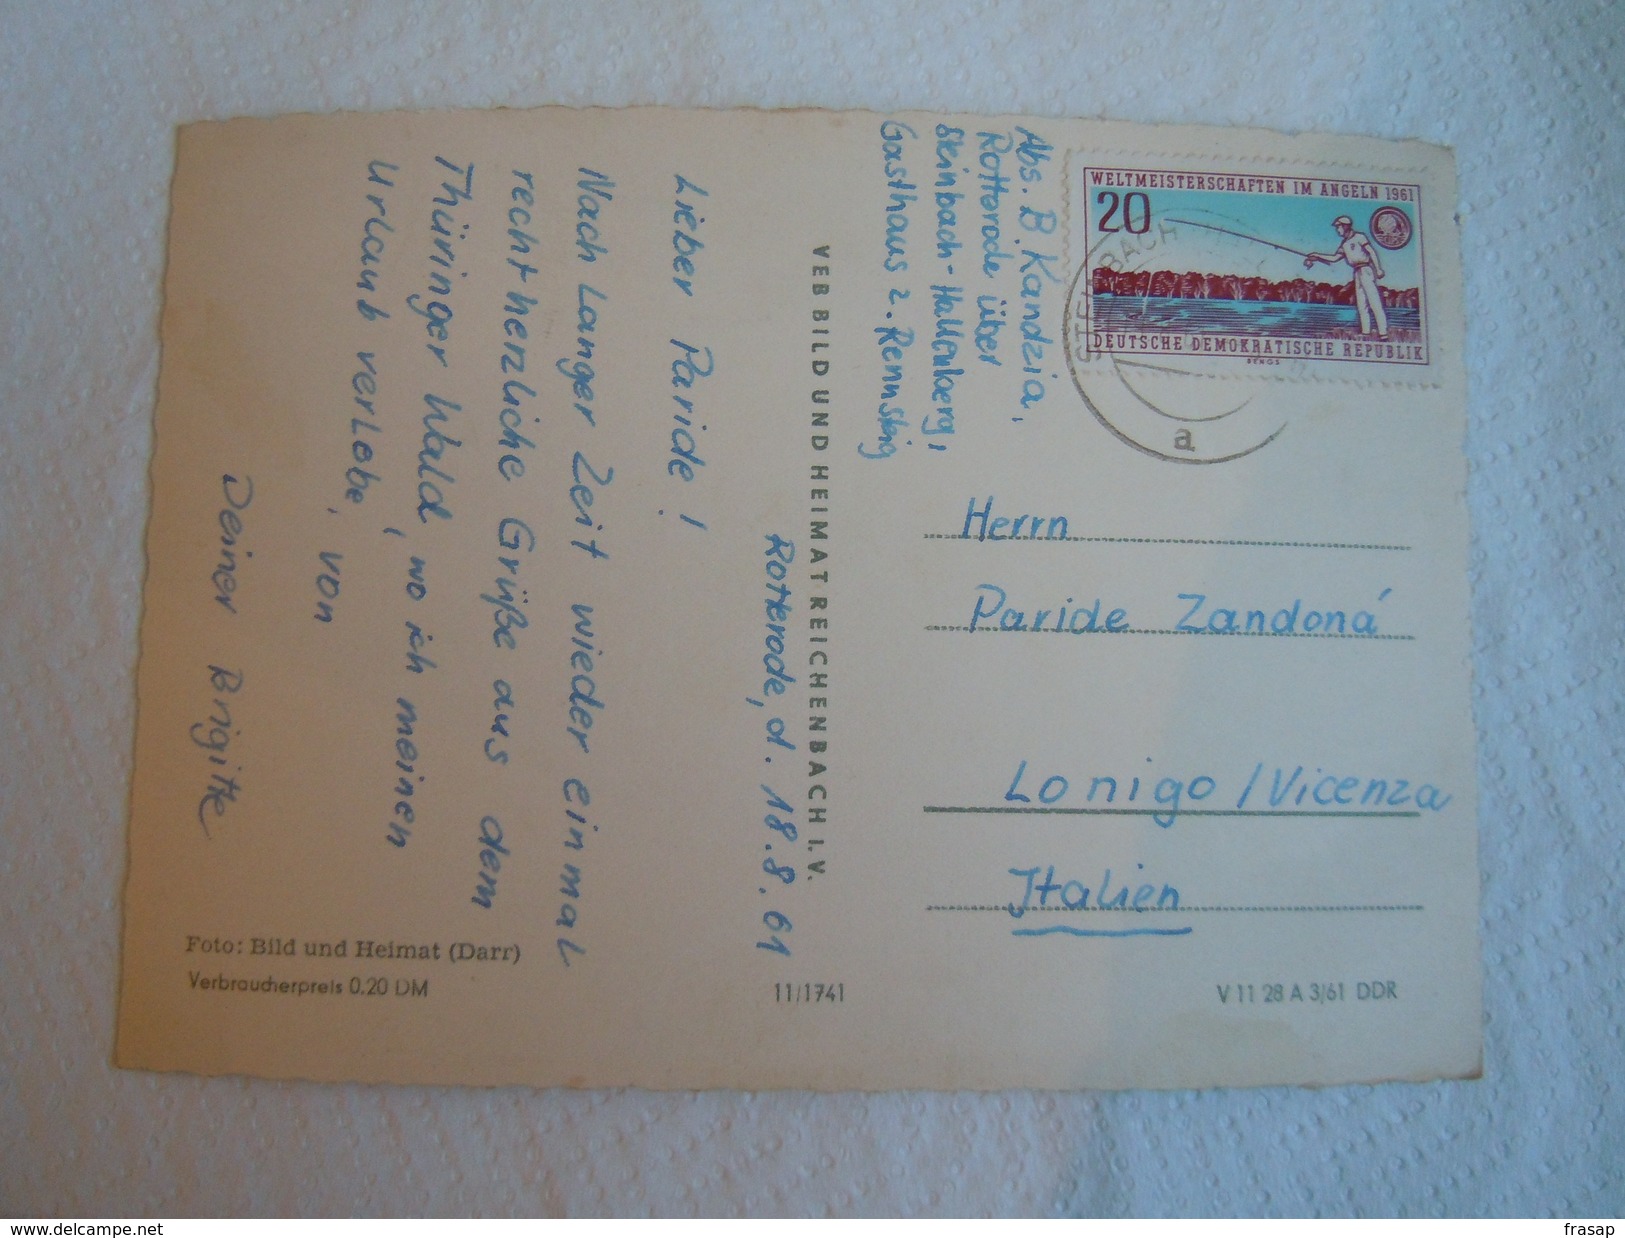 Rotterode, d. 18.8.61
Lieber Paride!
Nach Langer Zeit wieder einmal
recht herzliche Grüße aus dem
Thüringer Wald, wo ich meinen
Urlaub verlebe, von
Deiner Brigitte
VEB BILD UND HEIMAT REICHENBACH I. V.
Abs. B Kandzia,
Rotterode über
Steinbach-Hallenberg,
Gasthaus z. Rennsteig
WELTMEISTERSCHAFTEN IM ANGELN 1961
20
DEUTSCHE DEMOKRATISCHE REPUBLIK
BENGS
a
Herrn
Paride Zandoná
Lonigo / Vicenza
Italien
Foto: Bild und Heimat (Darr)
Verbraucherpreis 0,20 DM
11/1741
V 11 28 A 3/61 DDR
frasap
delcampe.net